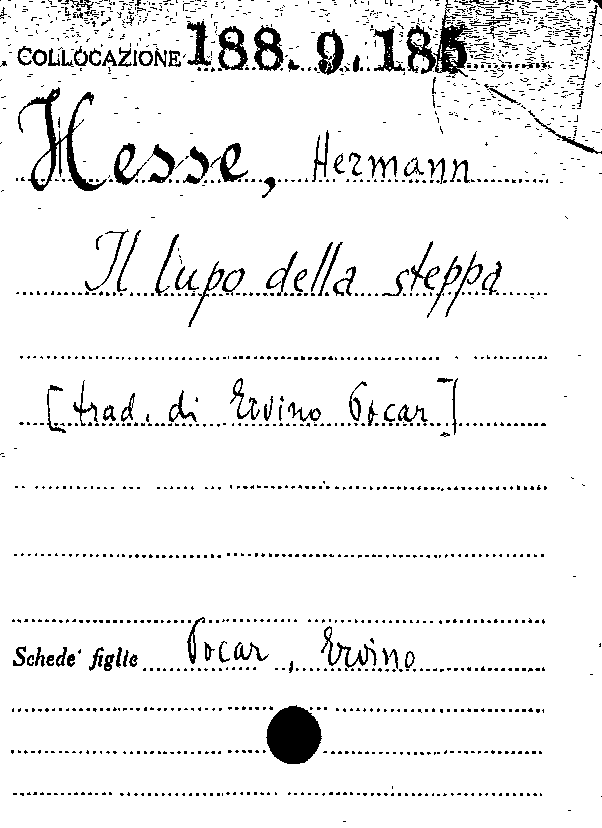 COLLOCAZIONE 188.9.185
Hesse, Hermann
Il lupo della steppa
[trad. di Ervino Pocar]
Schede figlie Pocar, Ervino